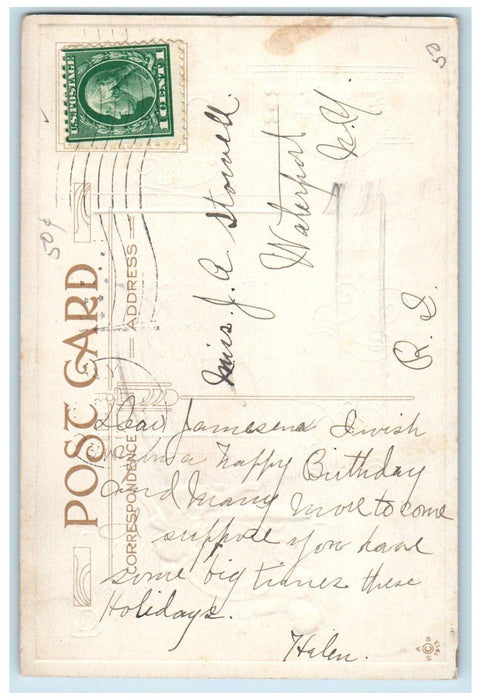 50
U.S. POSTAGE
1 CENT 1
50¢
POST CARD
CORRESPONDENCE
ADDRESS
Miss. J. A Stowell.
Waterport
N.Y.
R. D.
Dear Jamesena I wish
you a happy Birthday
and many more to come
suppose you have
some big times these
Holidays.
Helen.
A
S © S
1915